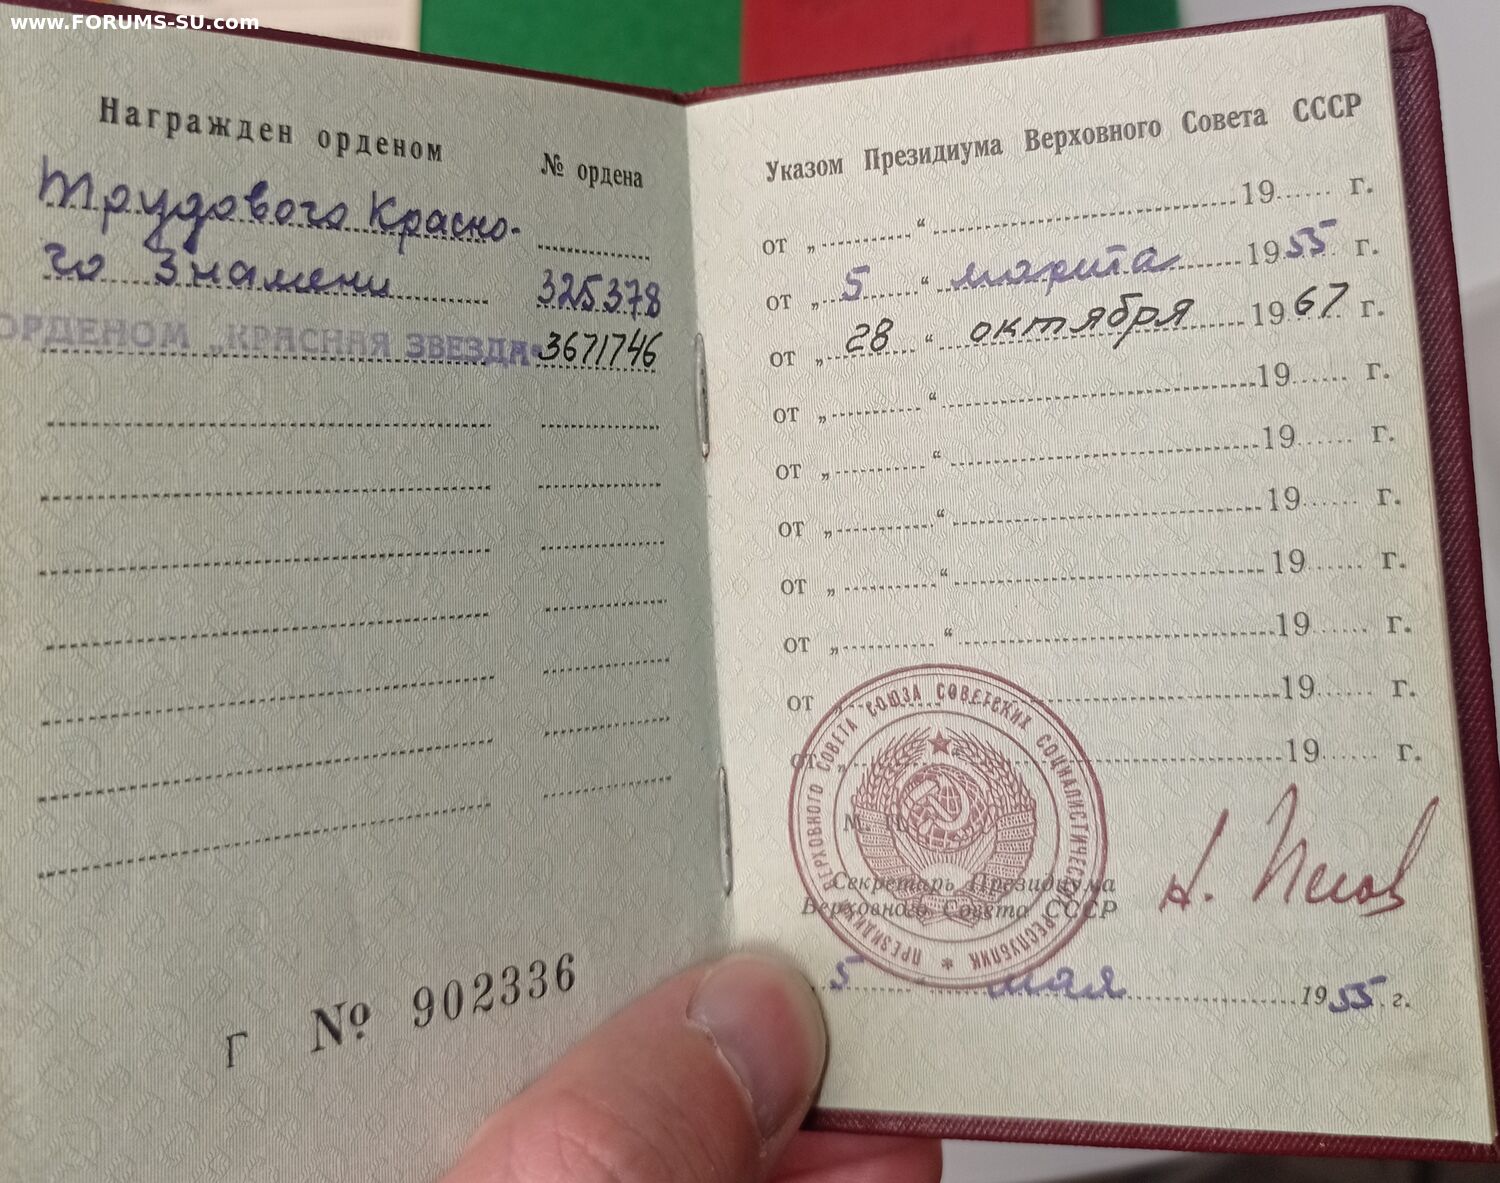 www.FORUMS-SU.com
Награжден орденом
№ ордена
Трудового Красно-
го Знамени 325378
ОРДЕНОМ „КРАСНАЯ ЗВЕЗДА“ 3671746
Г № 902336
Указом Президиума Верховного Совета СССР
от „ “ 19 г.
от „ 5 “ марта 1955 г.
от „ 28 “ октября 1967 г.
от „ “ 19 г.
от „ “ 19 г.
от „ “ 19 г.
от „ “ 19 г.
от „ “ 19 г.
от 19 г.
от „ “ 19 г.
М. П.
ПРЕЗИДИУМ ВЕРХОВНОГО СОВЕТА СОЮЗА СОВЕТСКИХ СОЦИАЛИСТИЧЕСКИХ РЕСПУБЛИК
Секретарь Президиума
Верховного Совета СССР
Н. Пегов
5 мая 1955 г.